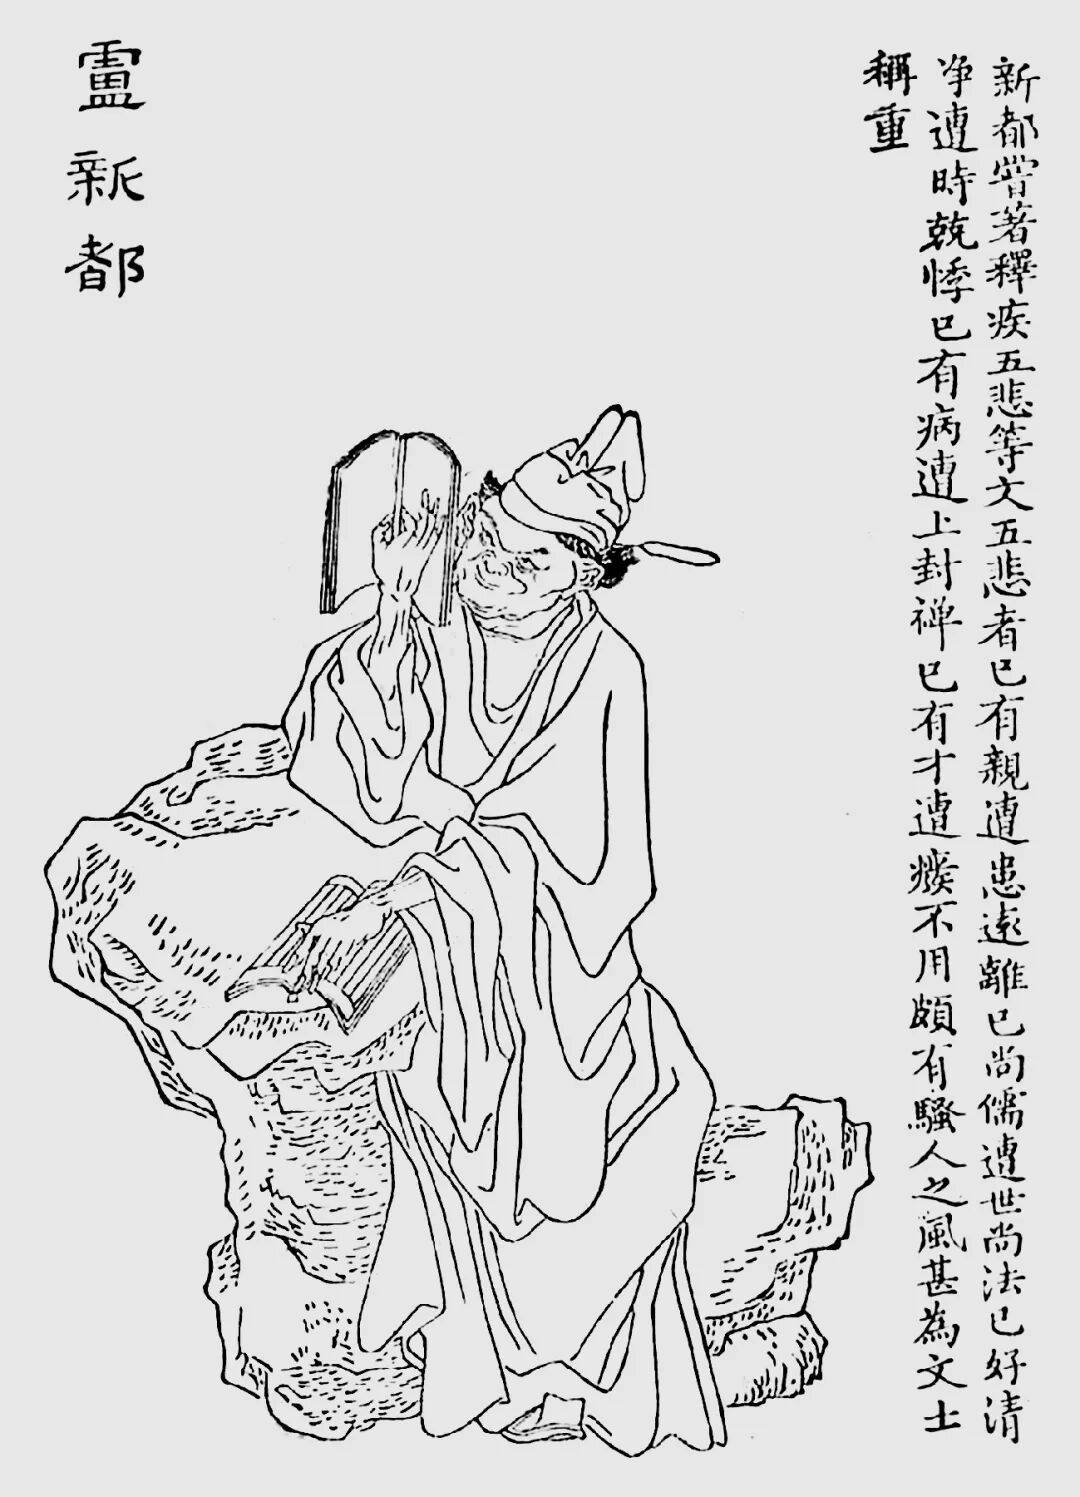 新都嘗著釋疾五悲等文五悲者已有親遭患遠離已尚儒遭世尚法已好清
净遭時兢悸已有病遭上封禅已有才遭癈不用頗有騷人之風甚為文士
稱重
盧新都